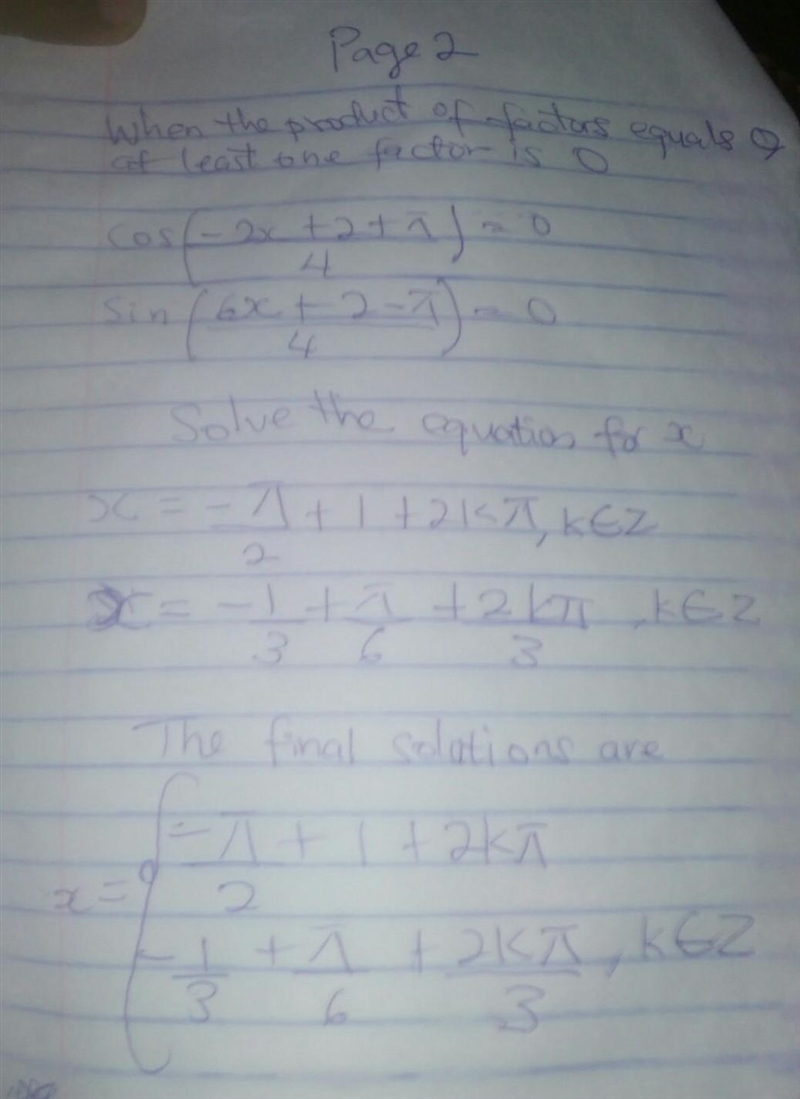 Page 2
When the product of factors equals 0
at least one factor is 0
cos(-2x + 2 + π / 4) = 0
sin(6x + 2 - π / 4) = 0
Solve the equation for x
x = -π/2 + 1 + 2kπ, k∈Z
x = -1/3 + π/6 + 2kπ/3, k∈Z
The final solutions are
x = { -π/2 + 1 + 2kπ
-1/3 + π/6 + 2kπ/3, k∈Z